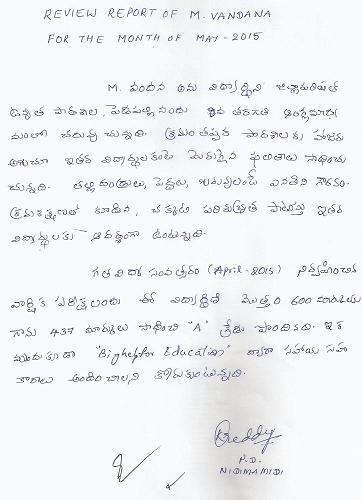 REVIEW REPORT OF M. VANDANA
FOR THE MONTH OF MAY - 2015
M. వందన అను విద్యార్థిని జిల్లాపరిషత్
ఉన్నత పాఠశాల, పెదపళ్ళినందు 9వ తరగతి ఆంగ్లమాధ్య
మంలో చదువు చున్నది. క్రమంతప్పక పాఠశాలకు హాజరు
అగుచూ ఇతర విద్యార్థులకంటే మెరుగైన ఫలితాలు సాధించు
చున్నది. తల్లిదండ్రులు, పెద్దలు, గురువులంటే ఎనలేని గౌరవం.
క్రమశిక్షణతో కూడిన, చక్కటి పరిశుభ్రత పాటిస్తూ ఇతర
విద్యార్థులకు ఆదర్శంగా ఉంటున్నది.
గత విద్యా సంవత్సరం (April-2015) నిర్వహించిన
వార్షిక పరీక్షలందు ఈ విద్యార్థిని మొత్తం 600 మార్కులకు
గాను 437 మార్కులు సాధించి "A" గ్రేడు పొందినది. ఇక
ముందు కూడా "Bighelp for Education" ద్వారా సహాయ సహ
కారాలు అందించాలని కోరుకుంటున్నది.
Reddy
P.D.
NIDIMAMIDI